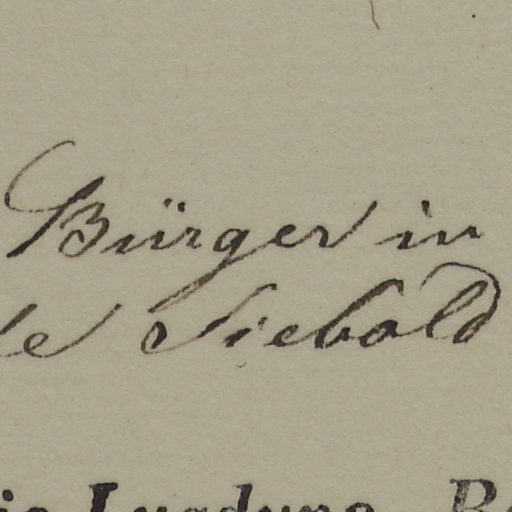 Bürger in
de Siebold
Lugduno